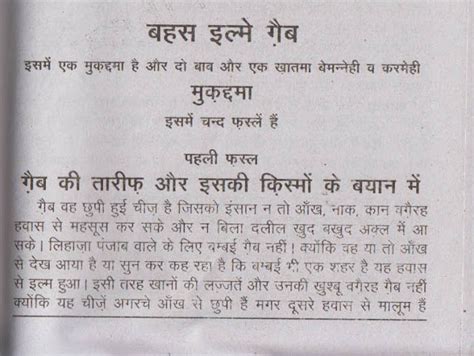 बहस इल्मे ग़ैब
इसमें एक मुक़द्दमा है और दो बाव और एक ख़ातमा बेमन्नेही व करमेही
मुक़द्दमा
इसमें चन्द फ़स्लें हैं
पहली फ़स्ल
ग़ैब की तारीफ़ और इसकी क़िस्मों के बयान में
ग़ैब वह छुपी हुई चीज़ है जिसको इंसान न तो आँख, नाक, कान वगैरह
हवास से महसूस कर सके और न बिला दलील खुद बखुद अक्ल में आ
सके। लिहाज़ा पंजाब वाले के लिए बम्बई ग़ैब नहीं। क्योंकि वह या तो आँख
से देख आया है या सुन कर कह रहा है कि बम्बई भी एक शहर है यह हवास
से इल्म हुआ। इसी तरह खानों की लज़्ज़तें और उनकी खुश्बू वगैरह ग़ैब नहीं
क्योंकि यह चीज़ें अगरचे आँख से छुपी हैं मगर दूसरे हवास से मालूम हैं